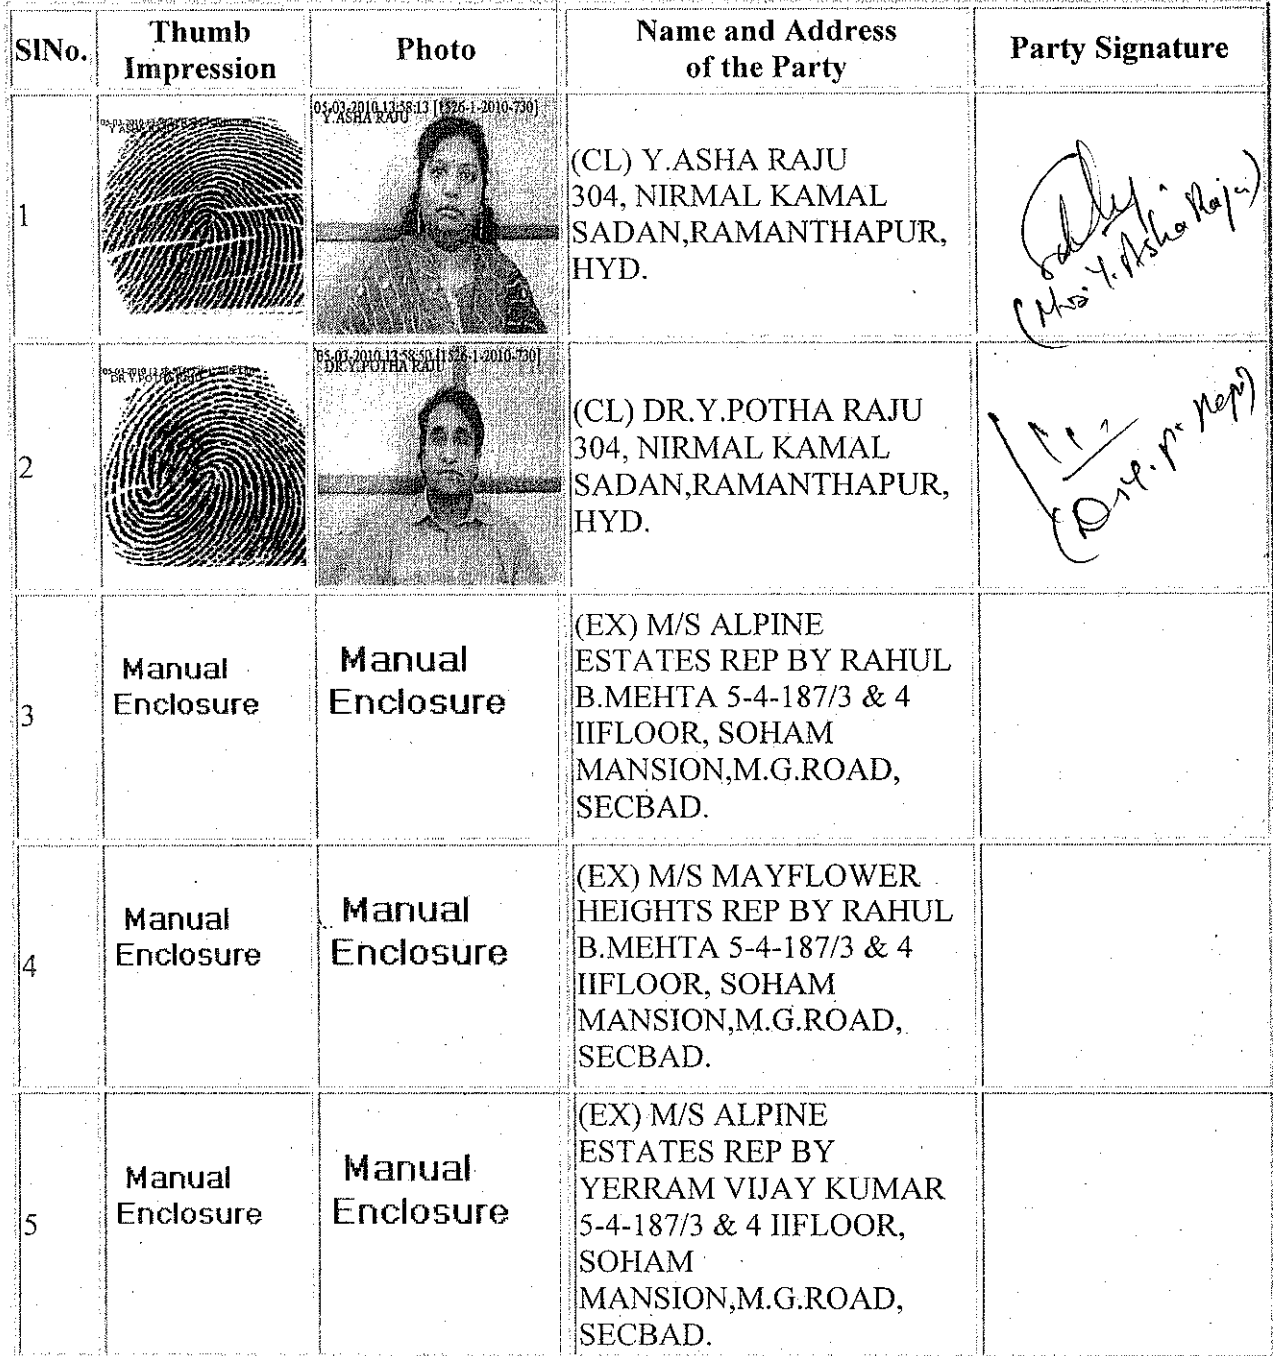 SlNo.
Thumb
Impression
Photo
Name and Address
of the Party
Party Signature
1
Y.ASHA RAJU
05-03-2010 13:58:13 [1526-1-2010-730]
Y.ASHA RAJU
(CL) Y.ASHA RAJU
304, NIRMAL KAMAL
SADAN,RAMANTHAPUR,
HYD.
(Mrs Y. Asha Raju)
2
DR.Y.POTHA RAJU
05-03-2010 13:58:50 [1526-1-2010-730]
DR.Y.POTHA RAJU
(CL) DR.Y.POTHA RAJU
304, NIRMAL KAMAL
SADAN,RAMANTHAPUR,
HYD.
3
Manual
Enclosure
Manual
Enclosure
(EX) M/S ALPINE
ESTATES REP BY RAHUL
B.MEHTA 5-4-187/3 & 4
IIFLOOR, SOHAM
MANSION,M.G.ROAD,
SECBAD.
4
Manual
Enclosure
Manual
Enclosure
(EX) M/S MAYFLOWER
HEIGHTS REP BY RAHUL
B.MEHTA 5-4-187/3 & 4
IIFLOOR, SOHAM
MANSION,M.G.ROAD,
SECBAD.
5
Manual
Enclosure
Manual
Enclosure
(EX) M/S ALPINE
ESTATES REP BY
YERRAM VIJAY KUMAR
5-4-187/3 & 4 IIFLOOR,
SOHAM
MANSION,M.G.ROAD,
SECBAD.